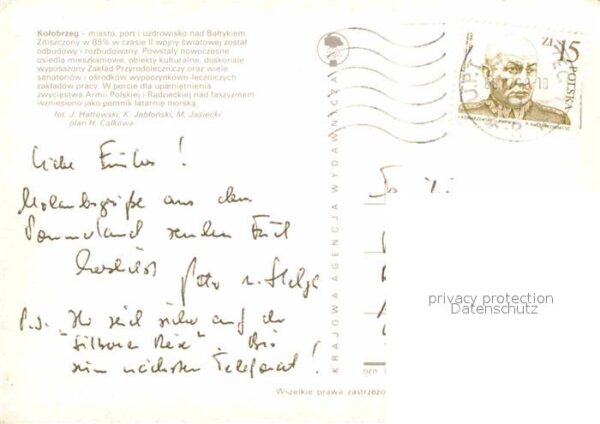 Kołobrzeg - miasto, port i uzdrowisko nad Bałtykiem.
Zniszczony w 85% w czasie II wojny światowej został
odbudowany i rozbudowany. Powstały nowoczesne
osiedla mieszkaniowe, obiekty kulturalne, doskonale
wyposażony Zakład Przyrodoleczniczy oraz wiele
sanatoriów i ośrodków wypoczynkowo-leczniczych
zakładów pracy. W porcie dla upamiętnienia
zwycięstwa Armii Polskiej i Radzieckiej nad faszyzmem
wzniesiono jako pomnik latarnię morską.
fot. J. Hattowski, K. Jabłoński, M. Jasiecki
plan H. Całkowa
Liebe
Urlaubsgrüße aus dem
Pommerland senden Euch
herzlichst u. Helga
P.S. Ihr seid sicher auf der
Bis
zum nächsten Telefonat!
KRAJOWA AGENCJA WYDAWNICZA
Wszelkie prawa zastrzeżo
ZŁ 15
POLSKA
10
privacy protection
Datenschutz